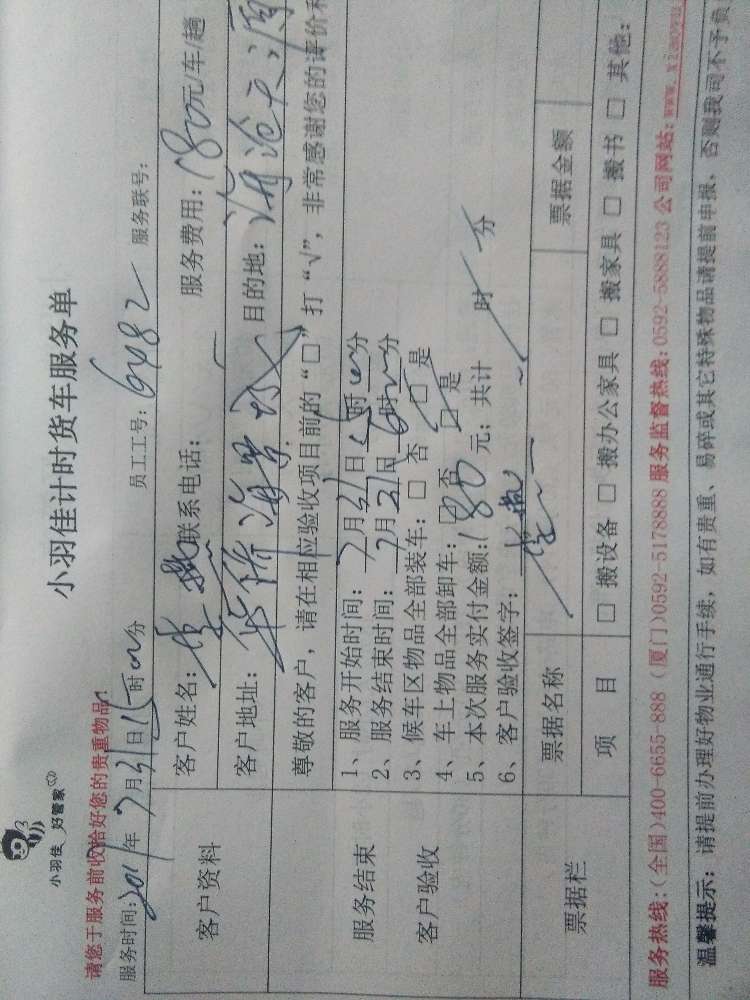 小羽佳 好管家
小羽佳计时货车服务单
请您于服务前收拾好您的贵重物品!
服务时间: 年7月31日15时00分 员工工号: 6482 服务联号:
客户资料
客户姓名: 联系电话: 服务费用: 180元/车/趟
客户地址: 目的地: 海沧天源
尊敬的客户,请在相应验收项目前的“□”打“√”,非常感谢您的评价和
服务结束
客户验收
1、服务开始时间: 7月31日15时00分
2、服务结束时间: 7月31日16时00分
3、候车区物品全部装车: □ 否 □ 是
4、车上物品全部卸车: □ 否 □ 是
5、本次服务实付金额: 180元; 共计 时 分
6、客户验收签字:
票据栏
票据名称 票据金额
项 目 □ 搬设备 □ 搬办公家具 □ 搬家具 □ 搬书 □ 其他:
服务热线:(全国)400-6655-888 (厦门)0592-5178888 服务监督热线:0592-5888123 公司网站:www.xiaoyu
温馨提示: 请提前办理好物业通行手续, 如有贵重、易碎或其它特殊物品请提前申报, 否则我司不予负